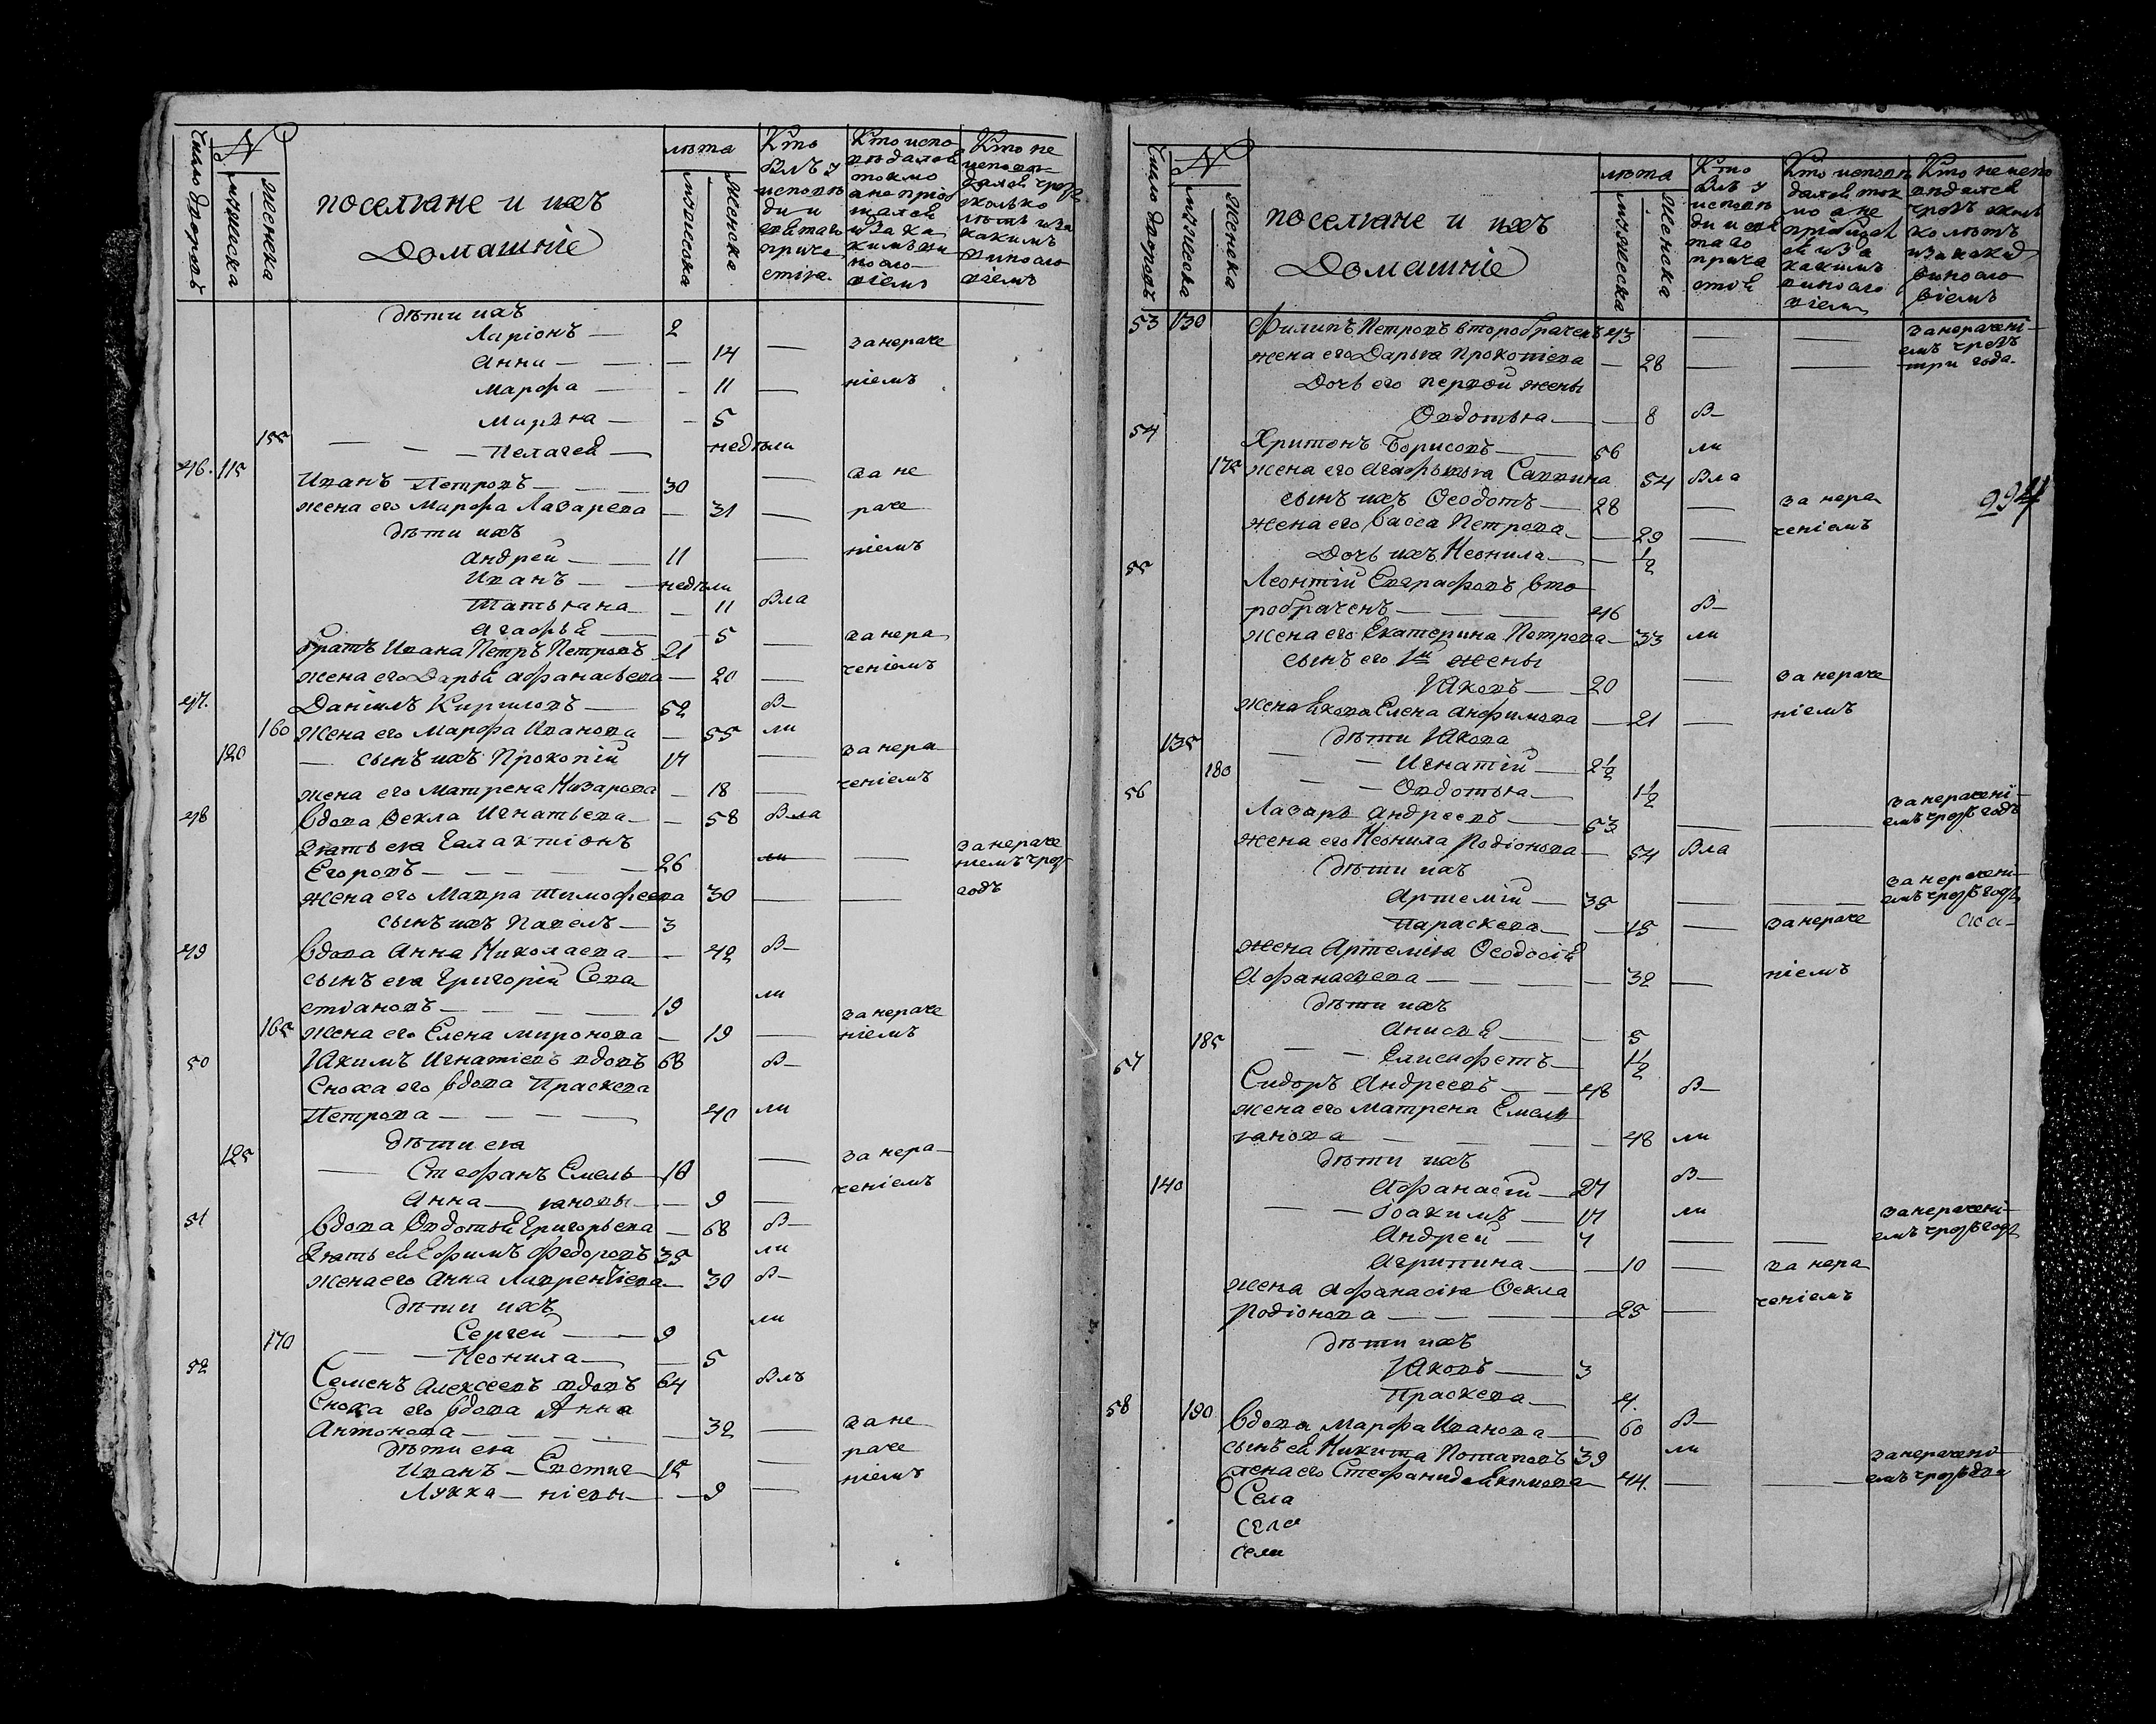 Число дворовъ
№
мужеска
женска
поселяне и ихъ
Домашніе
лѣта
мужеска
женска
Кто
былъ у
исповѣ
ди и
святаго
Кто испо
вѣдался
токмо
а не пріоб
щался
и за ка
кимъ ви
носло
віемъ
Кто не
исповѣ
дался чрезъ
сколько
лѣтъ и за
какимъ
винословіемъ
дѣти ихъ
Ларіонъ — 2
Анна — — 14 — за нераче
Марфа — - 11 — ніемъ
Марѳна — - 5
155 — - Пелагея — недѣли
46. 115 Иванъ Петровъ — 30 — за не
жена его Марфа Лазарева — 31 — раче
дѣти ихъ
Андрей — 11 — ніемъ
Иванъ — недѣли
Татьяна — - 11 Бла
Агафья — - 5 — за нера
братъ Ивана Петръ Петровъ 21
жена его Дарья Афанасьева — 20 — ченіемъ
47. Даніилъ Кириловъ — 52 Б—
160 жена его Марфа Иванова — 55 ли
120 — сынъ ихъ Прокопій 17 — за нера
жена его Матрена Назарова — 18 — ченіемъ
48 вдова Ѳекла Игнатьева — - 58 Бла
Зять ея Галактіонъ
Егоровъ — 26 ли — за нераче
ніемъ чрез
жена его Мавра Тимофеева 30 — — годъ
сынъ ихъ Павелъ — 3
49 вдова Анна Николаева — - 42 Б—
сынъ ея Григорій Сева
стіановъ — 19 ли
165 жена его Елена Миронова — 19 — за нераче
ніемъ
50 Іякимъ Игнатіевъ вдовъ 68 Б—
Сноха его вдова Праскева
Петрова — 40 ли
дѣти ея
125 — Стефанъ Емель 10 — за нера
Анна — яновы — 9 — ченіемъ
51 вдова Овдотья Григорьева — 68 Б—
Зять ей Ефимъ Федоровъ 35 ли
жена его Анна Лаврентіева — 30 Б—
дѣти ихъ
Сергей — 9 ли
170 — Неонила — 5
52 Семенъ Алексеевъ вдовъ 64 Блъ
Сноха его вдова Анна
Антонова — 32 — за не
дѣти ея
Иванъ — Евстиг 12 — раче
Лукка — ніевы — 9 — ніемъ
Число дворовъ
№
мужеска
женска
поселяне и ихъ
Домашніе
лѣта
мужеска
женска
Кто
былъ у
исповѣ
ди и свя
таго
прича
стія
Кто исповѣ
дался ток
мо а не
пріобщал
ся и за
какимъ
виносло
віемъ
Кто не испо
вѣдался
чрезъ сколь
ко лѣтъ
и за каким
виносло
віемъ
53 130 Филипъ Петровъ второбраченъ 43 — — за нерачені
емъ чрезъ
жена его Дарья Прокопіева — 28 — — три года.
Дочь его первой жены
Овдотья — - 8 Б—
54 Хритонъ Борисовъ — 56 ли
175 жена его Агафья Саввина 54 Бла
сынъ ихъ Ѳеодотъ — 28 — за нера
994
жена его Васса Петрова — 29 — ченіемъ
Дочь ихъ Неонила — — ½
55 Леонтій Евграфовъ вто
робраченъ — 46 Б—
жена его Екатерина Петрова — 33 ли
сынъ его 1й жены
Іяковъ — 20 — за нераче
жена Якова Елена Анфимова — 21 — ніемъ
дѣти Іякова
135 — - Игнатій — 2½
180 — - Овдотья — 1½
56 Лазарь Андреевъ — 53 — — за нерачені
емъ чрезъ годъ
жена его Неонила Родіонова — 54 Бла
дѣти ихъ
Артемій — 35 — — за нерачені
емъ чрезъ годъ
Параскева — - 15 — за нераче
жена Артемія Ѳеодосія
Афанасьева — 32 — ніемъ
дѣти ихъ
Анисья — - 5
185 — - Елисафетъ — 1½
57 Сидоръ Андреевъ — 48 Б—
жена его Матрена Емель
янова — 48 ли
дѣти ихъ
140 Афанасій — 27 Б—
— - Іоакимъ — 17 ли
Андрей — 7 — — за нерачені
емъ чрезъ годъ
Агрипина — - 10 — за нера
жена Афанасія Ѳекла
Родіонова — 25 — ченіемъ
дѣти ихъ
Іяковъ — 3
Праскева — 4.
58 190 вдова Марфа Иванова — 60 Б—
сынъ ей Никита Потаповъ 39 ли
жена его Стефанида Екимова — 44. — — за нерачені
емъ чрезъ два
Села
села
сели